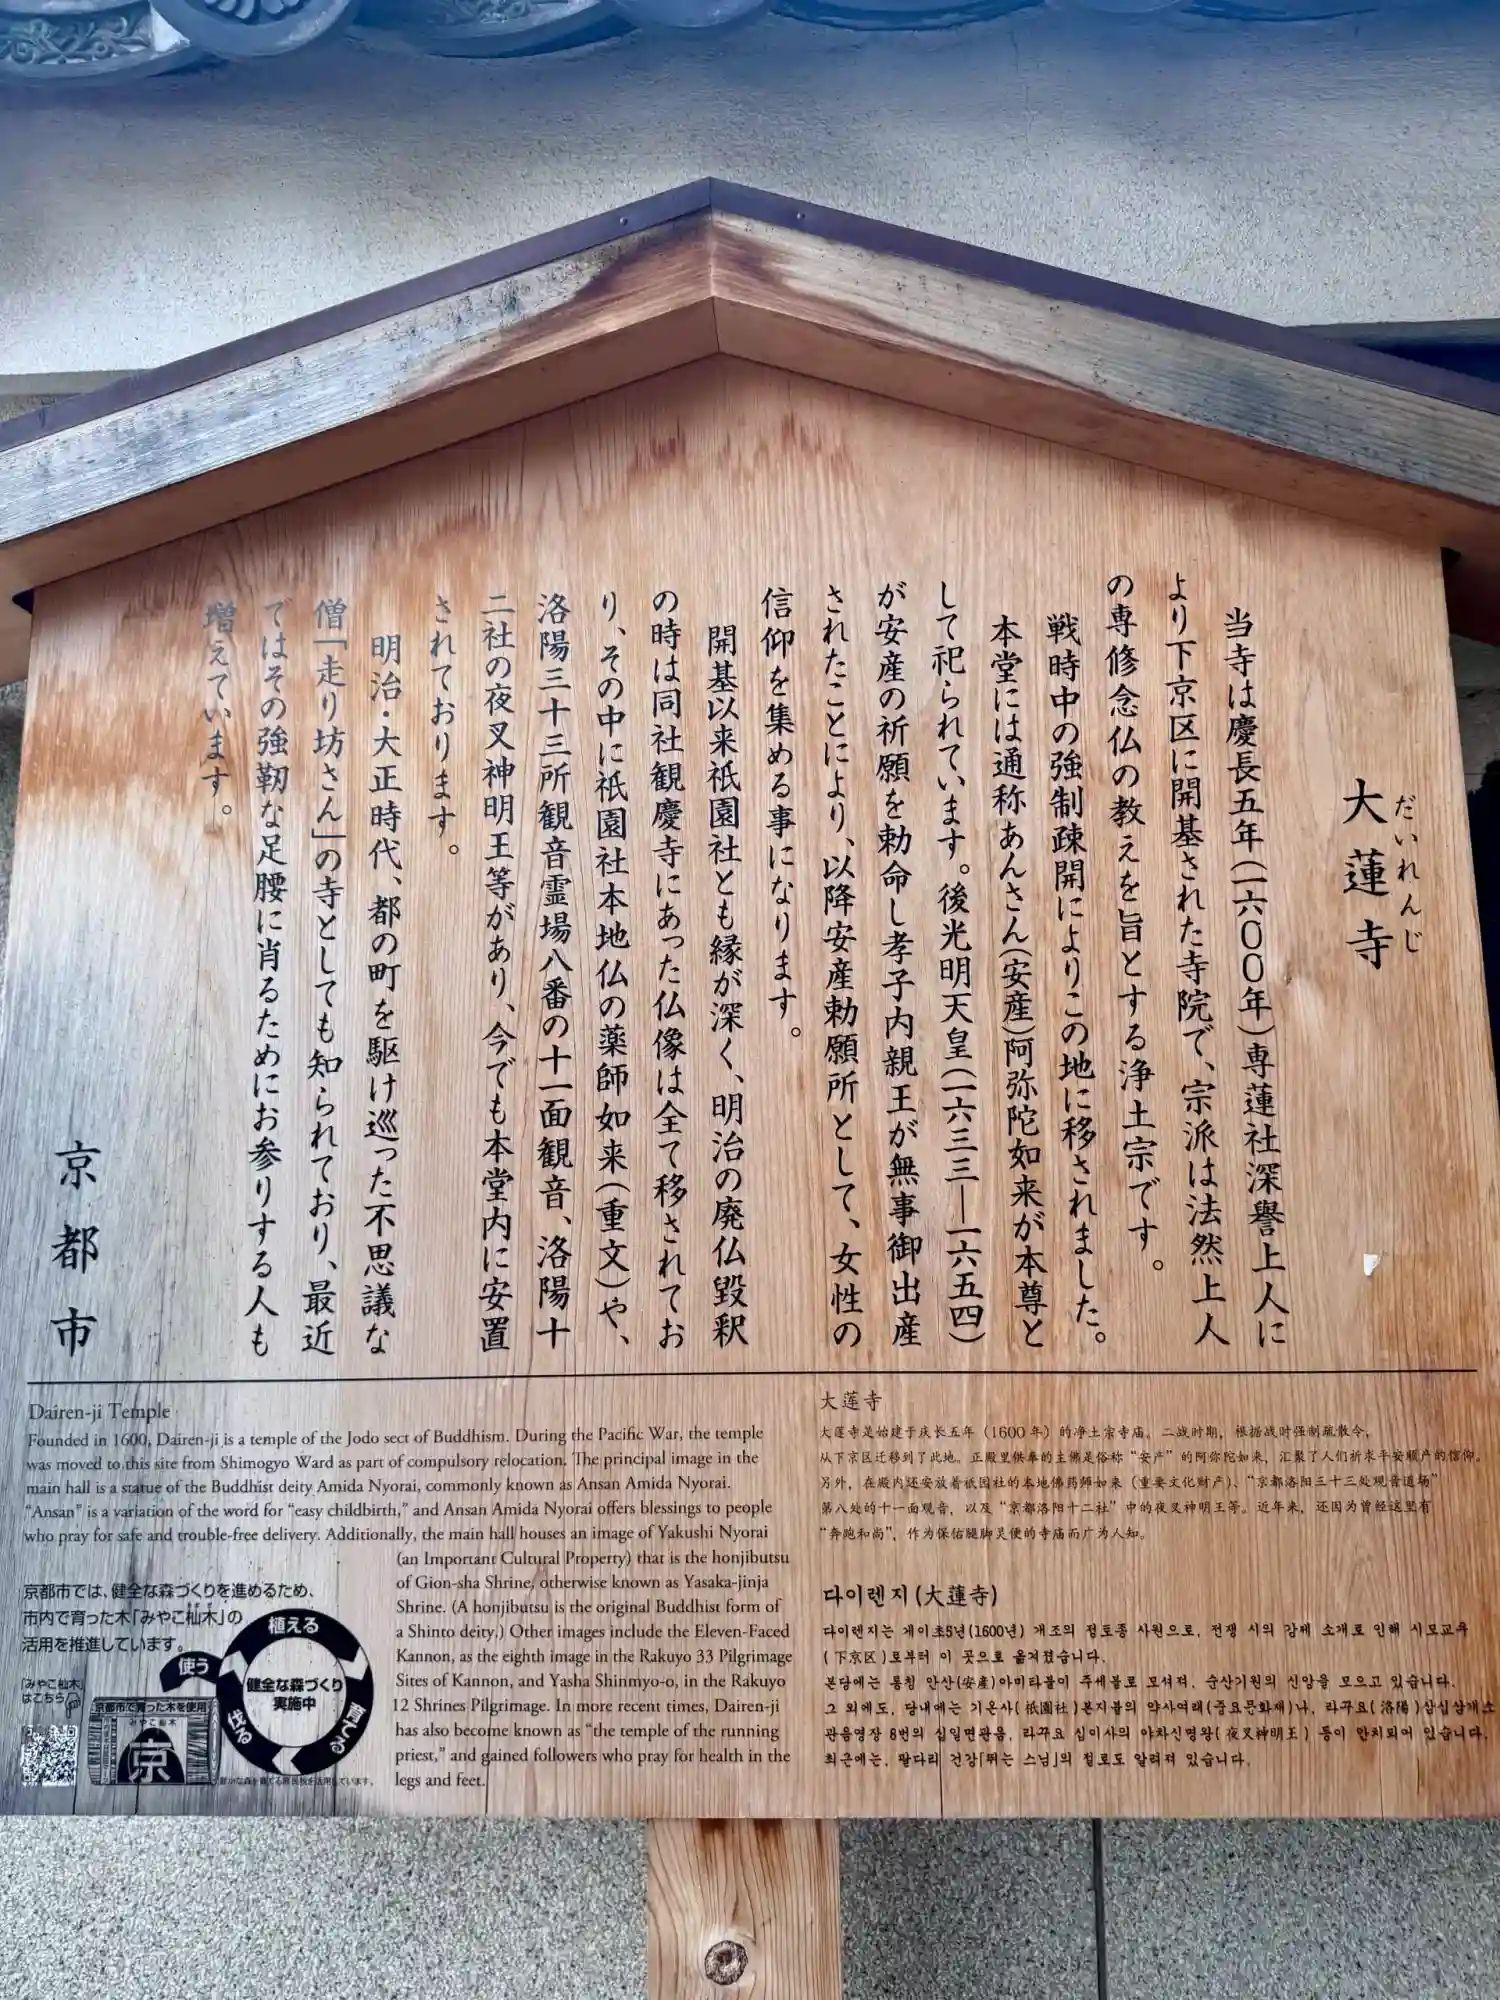 大蓮寺
だいれんじ
当寺は慶長五年(一六〇〇年)専蓮社深誉上人に
より下京区に開基された寺院で、宗派は法然上人
の専修念仏の教えを旨とする浄土宗です。
戦時中の強制疎開によりこの地に移されました。
本堂には通称あんさん(安産)阿弥陀如来が本尊と
して祀られています。後光明天皇(一六三三―一六五四)
が安産の祈願を勅命し孝子内親王が無事御出産
されたことにより、以降安産勅願所として、女性の
信仰を集める事になります。
開基以来祇園社とも縁が深く、明治の廃仏毀釈
の時は同社観慶寺にあった仏像は全て移されてお
り、その中に祇園社本地仏の薬師如来(重文)や、
洛陽三十三所観音霊場八番の十一面観音、洛陽十
二社の夜叉神明王等があり、今でも本堂内に安置
されております。
明治・大正時代、都の町を駆け巡った不思議な
僧「走り坊さん」の寺としても知られており、最近
ではその強靭な足腰に肖るためにお参りする人も
増えています。
京都市
Dairen-ji Temple
Founded in 1600, Dairen-ji is a temple of the Jodo sect of Buddhism. During the Pacific War, the temple
was moved to this site from Shimogyo Ward as part of compulsory relocation. The principal image in the
main hall is a statue of the Buddhist deity Amida Nyorai, commonly known as Ansan Amida Nyorai.
“Ansan” is a variation of the word for “easy childbirth,” and Ansan Amida Nyorai offers blessings to people
who pray for safe and trouble-free delivery. Additionally, the main hall houses an image of Yakushi Nyorai
(an Important Cultural Property) that is the honjibutsu
of Gion-sha Shrine, otherwise known as Yasaka-jinja
Shrine. (A honjibutsu is the original Buddhist form of
a Shinto deity.) Other images include the Eleven-Faced
Kannon, as the eighth image in the Rakuyo 33 Pilgrimage
Sites of Kannon, and Yasha Shinmyo-o, in the Rakuyo
12 Shrines Pilgrimage. In more recent times, Dairen-ji
has also become known as “the temple of the running
priest,” and gained followers who pray for health in the
legs and feet.
大莲寺
大莲寺是始建于庆长五年（1600年）的净土宗寺庙。二战时期，根据战时强制疏散令，
从下京区迁移到了此地。正殿里供奉的主佛是俗称“安产”的阿弥陀如来，汇聚了人们祈求平安顺产的信仰。
另外，在殿内还安放着祇园社的本地佛药师如来（重要文化财产）、“京都洛阳三十三处观音道场”
第八处的十一面观音，以及“京都洛阳十二社”中的夜叉神明王等。近年来，还因为曾经这里有
“奔跑和尚”，作为保佑腿脚灵便的寺庙而广为人知。
다이렌지(大蓮寺)
다이렌지는 게이초5년(1600년) 개조의 정토종 사원으로, 전쟁 시의 강제 소개로 인해 시모교쿠
(下京区)로부터 이 곳으로 옮겨졌습니다.
본당에는 통칭 안산(安産)아미타불이 주세불로 모셔져, 순산기원의 신앙을 모으고 있습니다.
그 외에도, 당내에는 기온사(祇園社)본지불의 약사여래(중요문화재)나, 라쿠요(洛陽)삼십삼개소
관음영장 8번의 십일면관음, 라쿠요 십이사의 야차신명왕(夜叉神明王) 등이 안치되어 있습니다.
최근에는, 팔다리 건강「뛰는 스님」의 절로도 알려져 있습니다.
京都市では、健全な森づくりを進めるため、
市内で育った木「みやこ杣木」の
活用を推進しています。
「みやこ杣木」
はこちら
京都市で育った木を使用
みやこ杣木
京
植える
育てる
伐る
使う
健全な森づくり
実施中